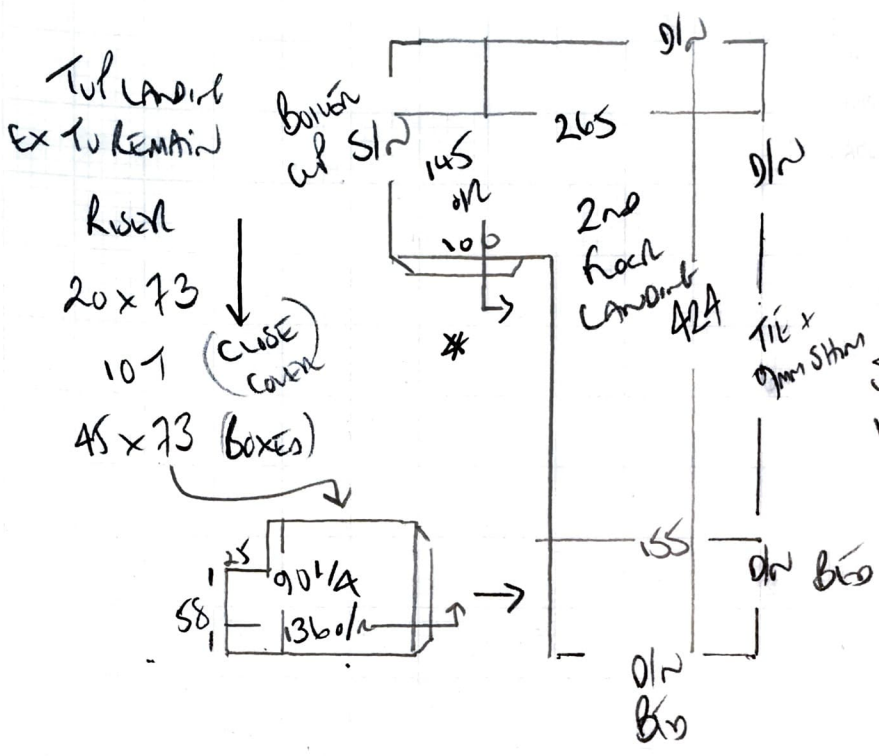 TOP LANDING
EX TO REMAIN
RISER
20 x 73
10T
(CLOSE COVER)
45 x 73 (BOXED)
25
90 1/4
58
136 O/N
BOILER
CUP S/N
145
O/R
100
*
D/N
265
D/N
2ND
FLOOR
LANDING
424
TILE x
9mm SHIM
155
D/N BED
D/N
BED